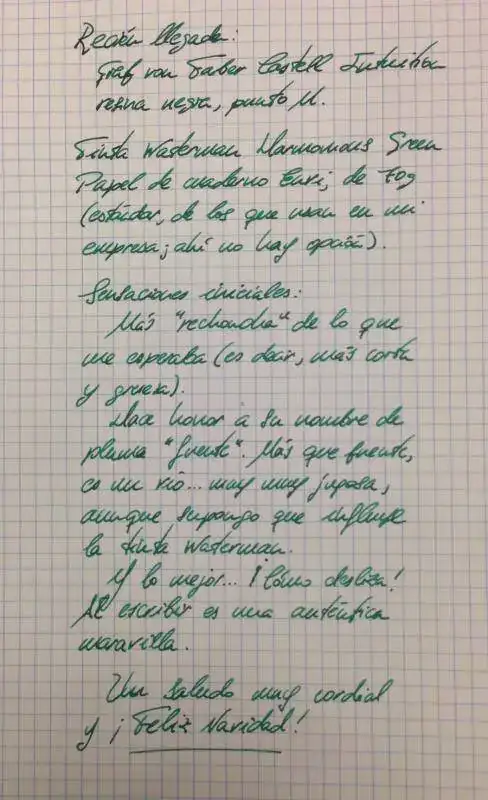 Recién llegada:
Graf von Faber Castell Intuition
resina negra, punto M.
Tinta Waterman Harmonious Green
Papel de cuaderno Enri, de 70g
(estándar, de los que usan en mi
empresa; ahí no hay opción).
Sensaciones iniciales:
Más "rechoncha" de lo que
me esperaba (es decir, más corta
y gruesa).
Hace honor a su nombre de
pluma "fuente". Más que fuente,
es un río... muy muy jugosa,
aunque supongo que influye
la tinta Waterman.
Y lo mejor... ¡Cómo desliza!
Al escribir es una auténtica
maravilla.
Un saludo muy cordial
y ¡Feliz Navidad!